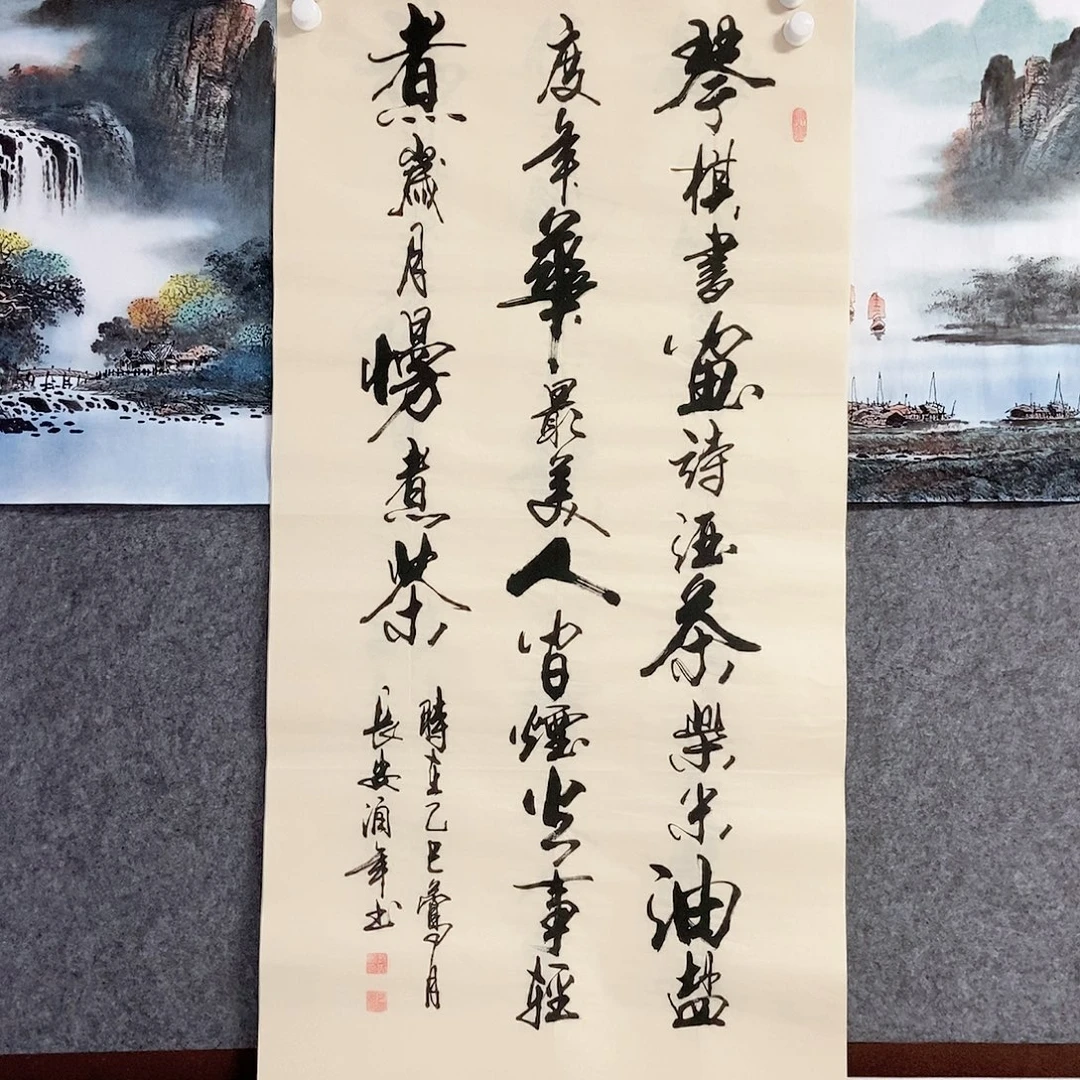 琴棋書畫詩酒茶柴米油盐
度年華最美人间煙火事輕
煮歲月慢煮茶
時在乙巳鶯月
長安年书